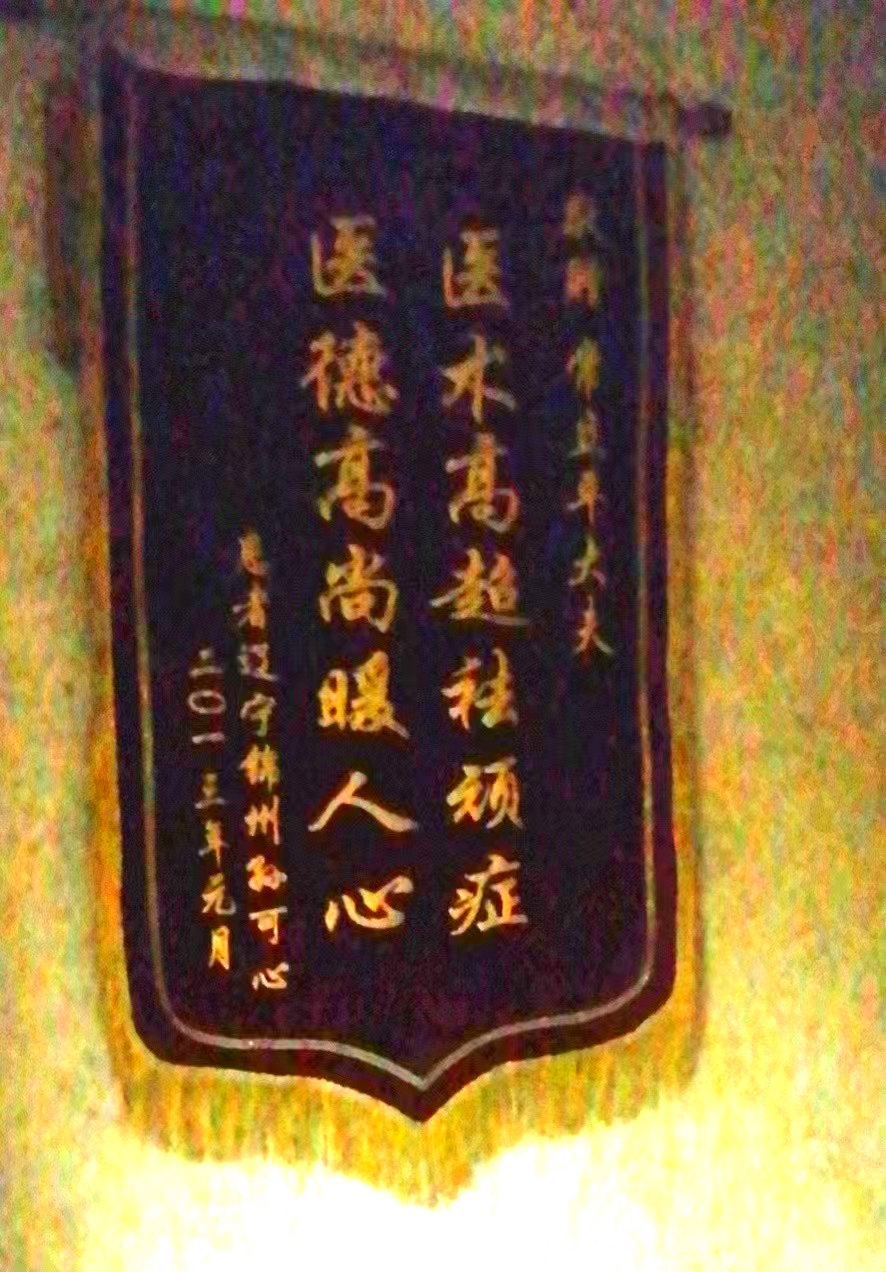 大夫
医术高超祛顽症
医德高尚暖人心
患者辽宁锦州孙可心
二〇一三年元月